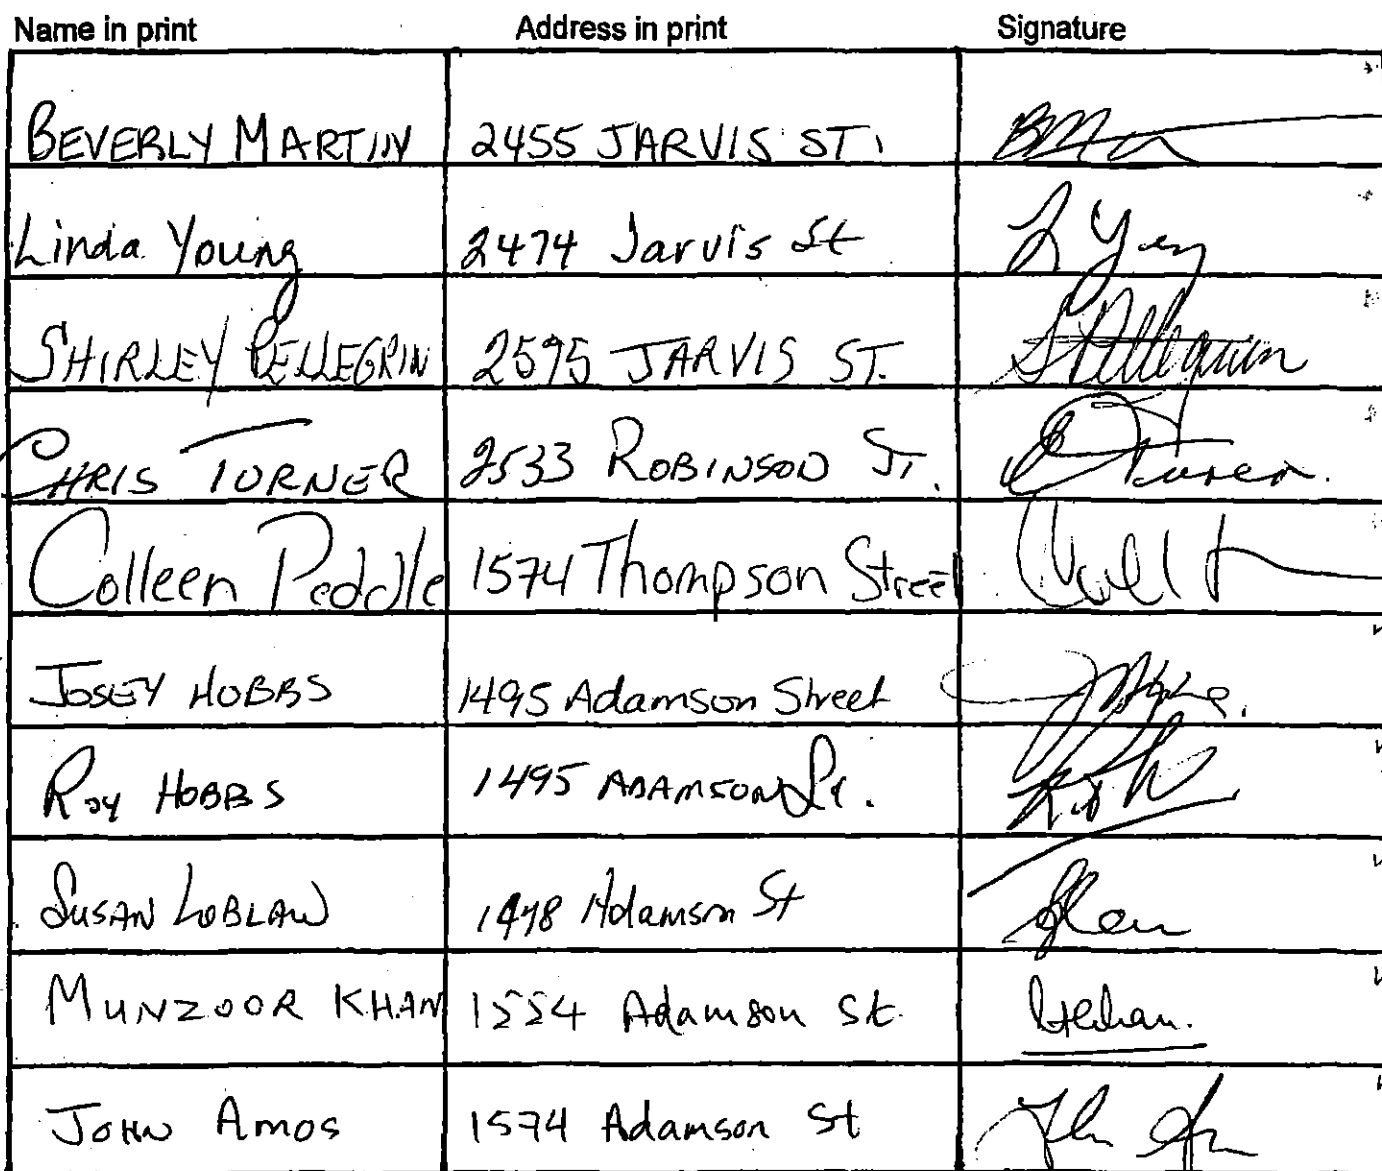 Name in print Address in print Signature
BEVERLY MARTIN 2455 JARVIS ST.
Linda Young 2474 Jarvis St L Young
SHIRLEY PELLEGRIN 2595 JARVIS ST. S Pellegrin
CHRIS TURNER 2533 ROBINSON ST. C Turner.
Colleen Peddle 1574 Thompson Street
JOSEY HOBBS 1495 Adamson Street
Roy HOBBS 1495 ADAMSON St.
SUSAN LOBLAW 1498 Adamson St
MUNZOOR KHAN 1554 Adamson St.
JOHN Amos 1574 Adamson St